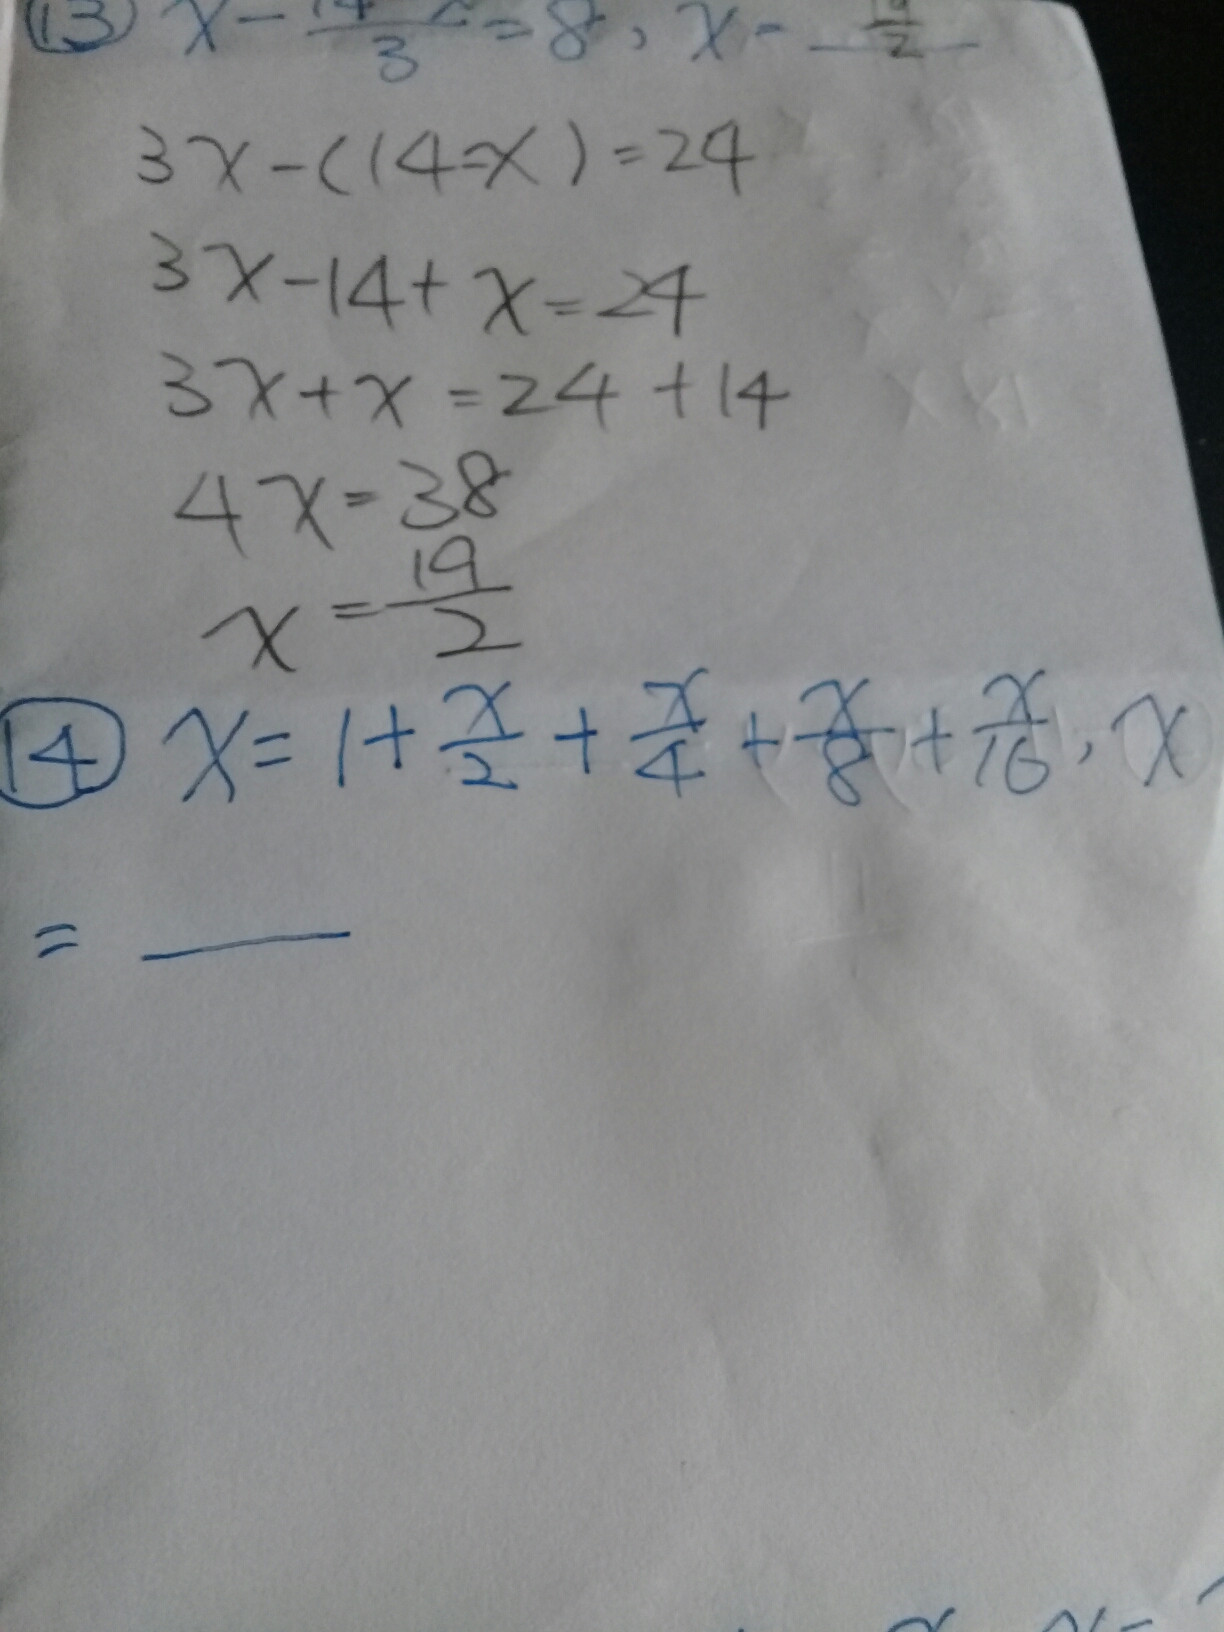 ⑬ x - (14-x)/3 = 8, x = 19/2
3x-(14-x)=24
3x-14+x=24
3x+x=24+14
4x=38
x=19/2
⑭ x=1+x/2+x/4+x/8+x/16, x
= ___
x=